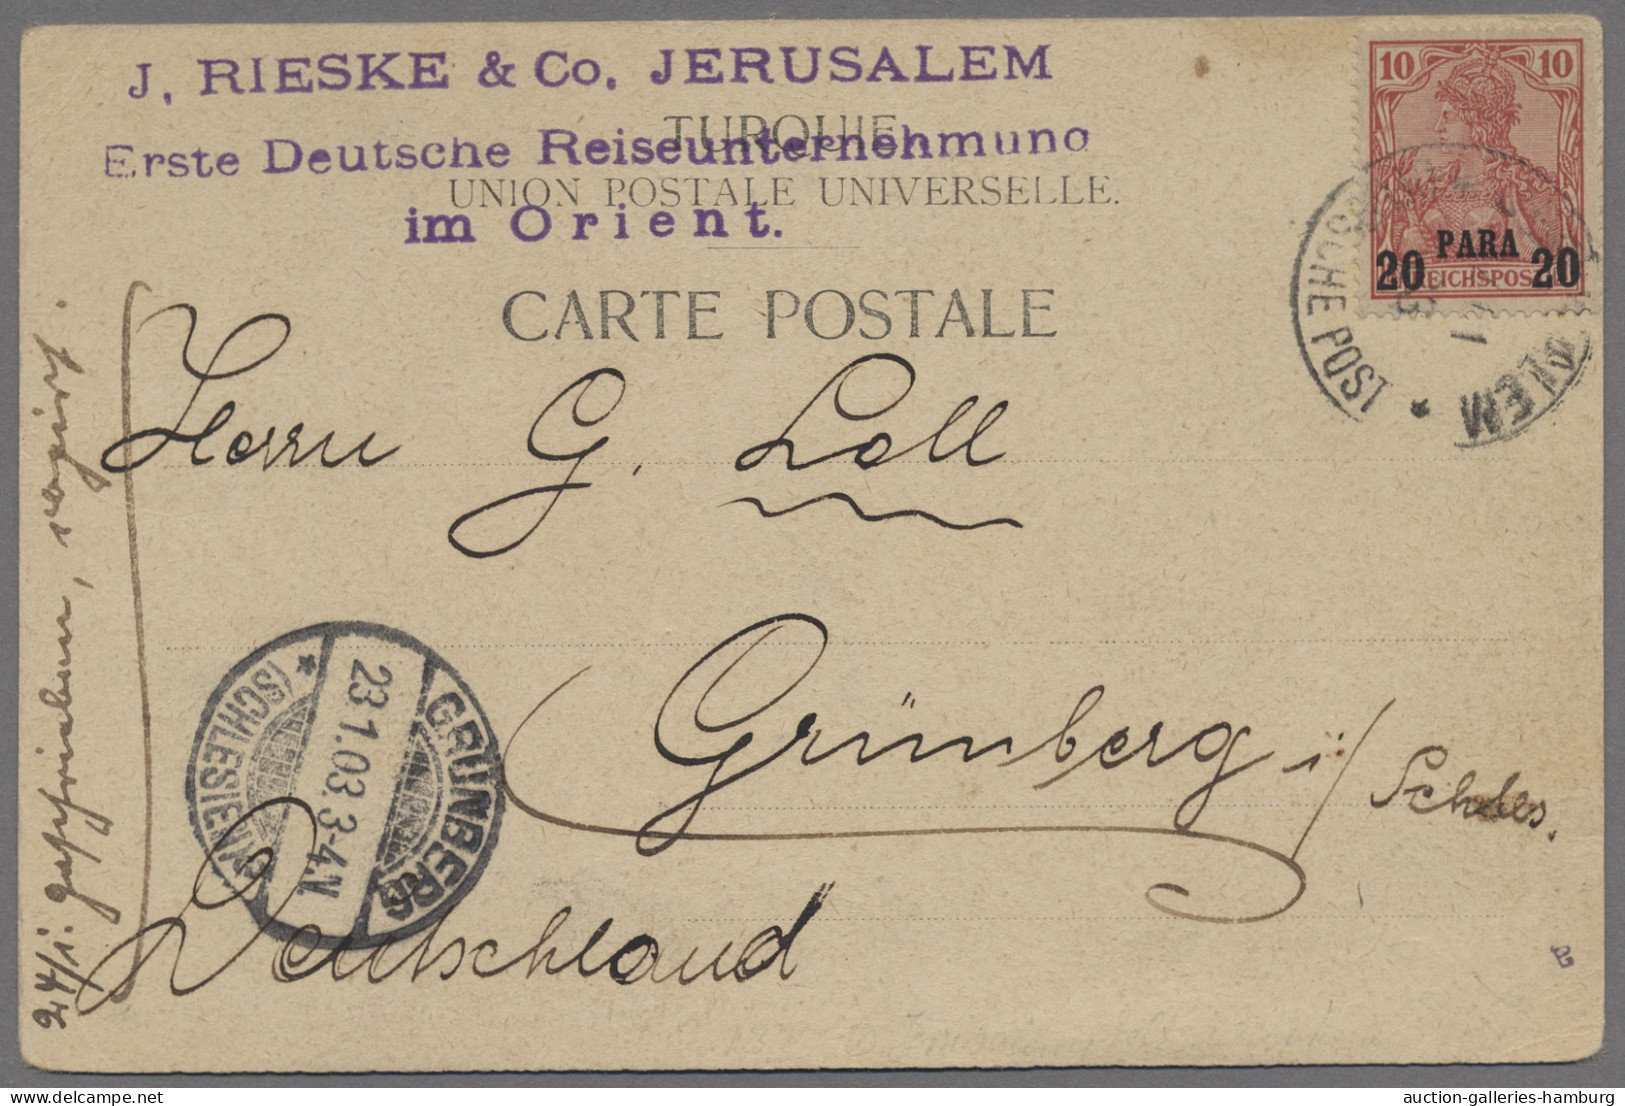 J. RIESKE & Co. JERUSALEM
TURQUIE.
Erste Deutsche Reiseunternehmung
UNION POSTALE UNIVERSELLE.
im Orient.
CARTE POSTALE
10 10
PARA
20 20
REICHSPOST
SCHE POST
LEM
Herrn G. Loll
Grünberg i/ Schles.
Deutschland
GRÜNBERG
23 1.03. 3-4.N.
(SCHLESIEN)
24/1.
auction-galleries-hamburg